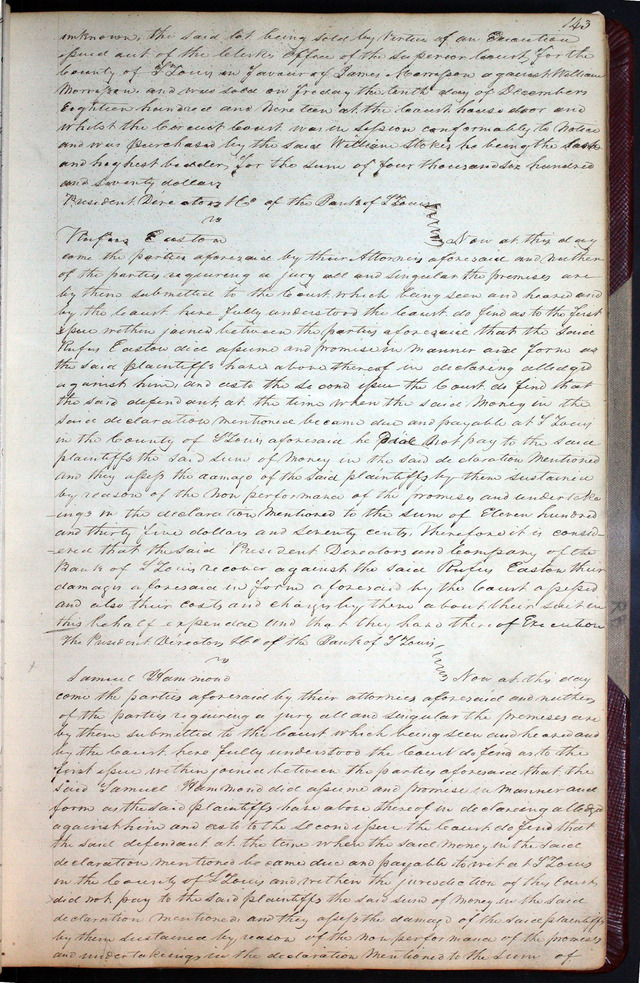 143
unknown, the said lot being sold by Virtue of an Execution
issued out of the Clerks Office of the Superior Court, for the
County of St Louis in favour of James Morrisson against William
Morrisson. and was sold on friday the tenth day of December
Eighteen hundred and Nineteen at the Court house door and
whilst the Circuit Court was in session conformably to Notice
and was purchased by the said William Stokes he being the last
and highest bidder, for the sum of four thousand six hundred
and seventy dollars
President Directors &Co of the Bank of St Louis
vs
Rufus Easton Now at this day
come the parties aforesaid by their Attornies aforesaid and neither
of the parties requiring a jury all and singular the premises are
by them submitted to the Court which being seen and heard and
by the Court here fully understood the Court do find as to the first
issue within joined between the parties aforesaid that the said
Rufus Easton did assume and promise in Manner and form as
the said plaintiffs have above thereof in declaring alledged
against him, and as to the second issue the Court do find that
the said defendant at the time when the said Money in the
said declaration mentioned became due and payable at St Louis
in the County of St Louis aforesaid he did Not pay to the said
plaintiffs the said sum of Money in the said declaration Mentioned
and they assess the damage of the said plaintiffs by them sustained
by reason of the Non performance of the promises and undertak-
-ings in the declaration Mentioned to the sum of Eleven hundred
and thirty five dollars and seventy cents, Therefore it is consid-
-ered that the said President Directors and Company of the
Bank of St Louis recover against the said Rufus Easton their
damages aforesaid in form aforesaid by the Court assessed
and also their costs and charges by them about their suit in
this behalf expended and that they have thereof Execution
The President Directors &Co of the Bank of St Louis
vs
Samuel Hammond Now at this day
come the parties aforesaid by their attornies aforesaid and neither
of the parties requiring a jury all and singular the premises are
by them submitted to the Court which being seen and heard and
by the Court here fully understood the Court do find as to the
first issue within joined between the parties aforesaid that the
said Samuel Hammond did assume and promise in Manner and
form as the said plaintiffs have above thereof in declaring alledged
against him and as to the second issue the Court do find that
the said defendant at the time when the said Money in the said
declaration mentioned became due and payable to wit at St Louis
in the County of St Louis and within the jurisdiction of this Court,
did not pay to the said plaintiffs the said sum of Money in the said
declaration Mentioned, and they assess the damage of the said plaintiffs
by them sustained by reason of the non performance of the promises
and undertakings in the declaration Mentioned to the sum of